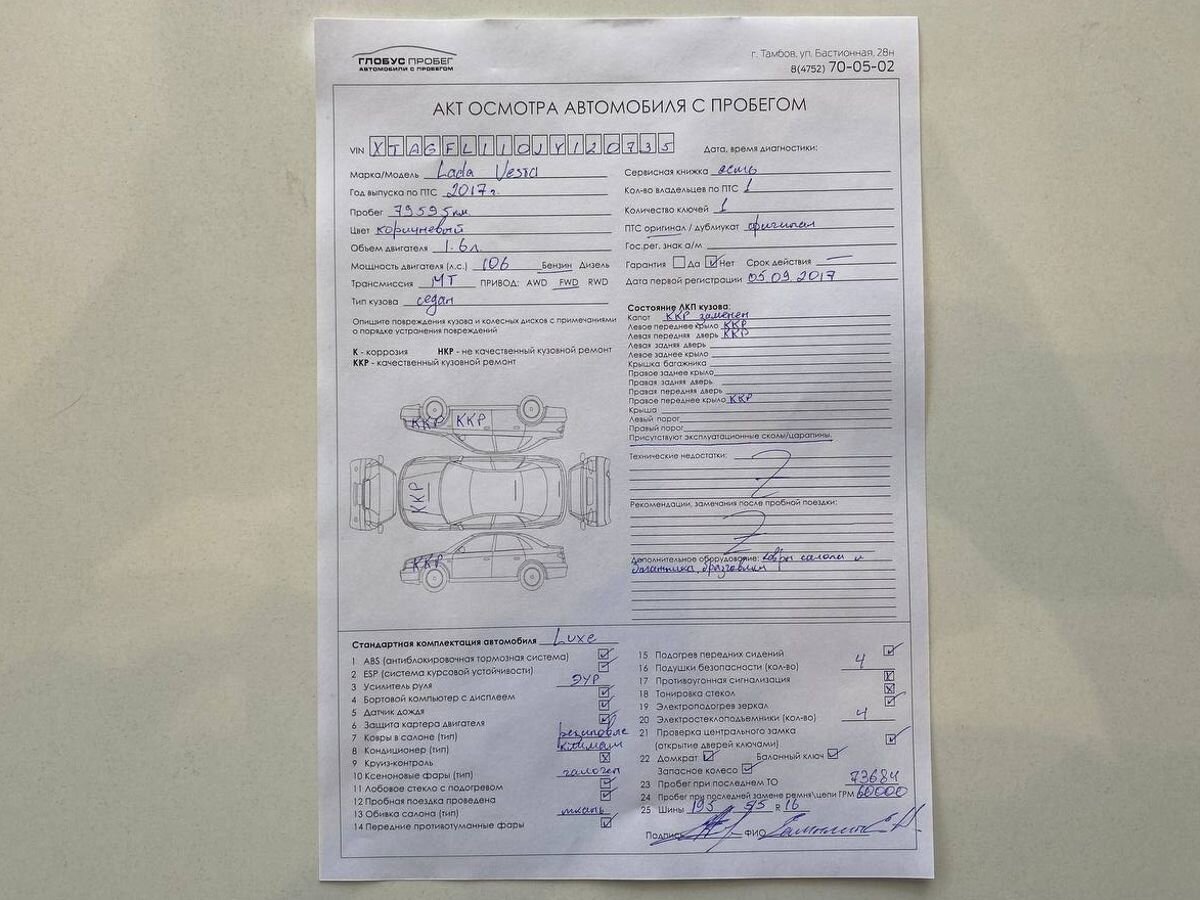 ГЛОБУС ПРОБЕГ
АВТОМОБИЛИ С ПРОБЕГОМ
г. Тамбов, ул. Бастионная, 28н
8(4752) 70-05-02
АКТ ОСМОТРА АВТОМОБИЛЯ С ПРОБЕГОМ
VIN XTAGFL110JY120735
Марка/Модель Lada Vesta
Год выпуска по ПТС 2017 г.
Пробег 79595 км
Цвет коричневый
Объем двигателя 1.6 л
Мощность двигателя (л.с.) 106 Бензин Дизель
Трансмиссия МТ ПРИВОД: AWD FWD RWD
Тип кузова седан
Опишите повреждения кузова и колесных дисков с примечаниями
о порядке устранения повреждений
К - коррозия НКР - не качественный кузовной ремонт
ККР - качественный кузовной ремонт
ККР ККР
ККР
ККР
Дата, время диагностики:
Сервисная книжка есть
Кол-во владельцев по ПТС 1
Количество ключей 1
ПТС оригинал / дубликат оригинал
Гос.рег. знак а/м
Гарантия Да Нет Срок действия —
Дата первой регистрации 05.09.2017
Состояние ЛКП кузова:
Капот ККР заменен
Левое переднее крыло ККР
Левая передняя дверь ККР
Левая задняя дверь
Левое заднее крыло
Крышка багажника
Правое заднее крыло
Правая задняя дверь
Правая передняя дверь
Правое переднее крыло ККР
Крыша
Левый порог
Правый порог
Присутствуют эксплуатационные сколы/царапины.
Технические недостатки:
Рекомендации, замечания после пробной поездки:
Дополнительное оборудование: ковры салона и
багажника, брызговики
Стандартная комплектация автомобиля Luxe
1 ABS (антиблокировочная тормозная система)
2 ESP (система курсовой устойчивости)
3 Усилитель руля ЭУР
4 Бортовой компьютер с дисплеем
5 Датчик дождя
6 Защита картера двигателя
7 Ковры в салоне (тип) резиновые
8 Кондиционер (тип) климат
9 Круиз-контроль
10 Ксеноновые фары (тип) галоген
11 Лобовое стекло с подогревом
12 Пробная поездка проведена
13 Обивка салона (тип) ткань
14 Передние противотуманные фары
15 Подогрев передних сидений
16 Подушки безопасности (кол-во) 4
17 Противоугонная сигнализация
18 Тонировка стекол
19 Электроподогрев зеркал
20 Электростеклоподъемники (кол-во) 4
21 Проверка центрального замка
(открытие дверей ключами)
22 Домкрат Балонный ключ
Запасное колесо
23 Пробег при последнем ТО 73684
24 Пробег при последней замене ремня\цепи ГРМ 60000
25 Шины 195 55 R 16
Подпись ФИО